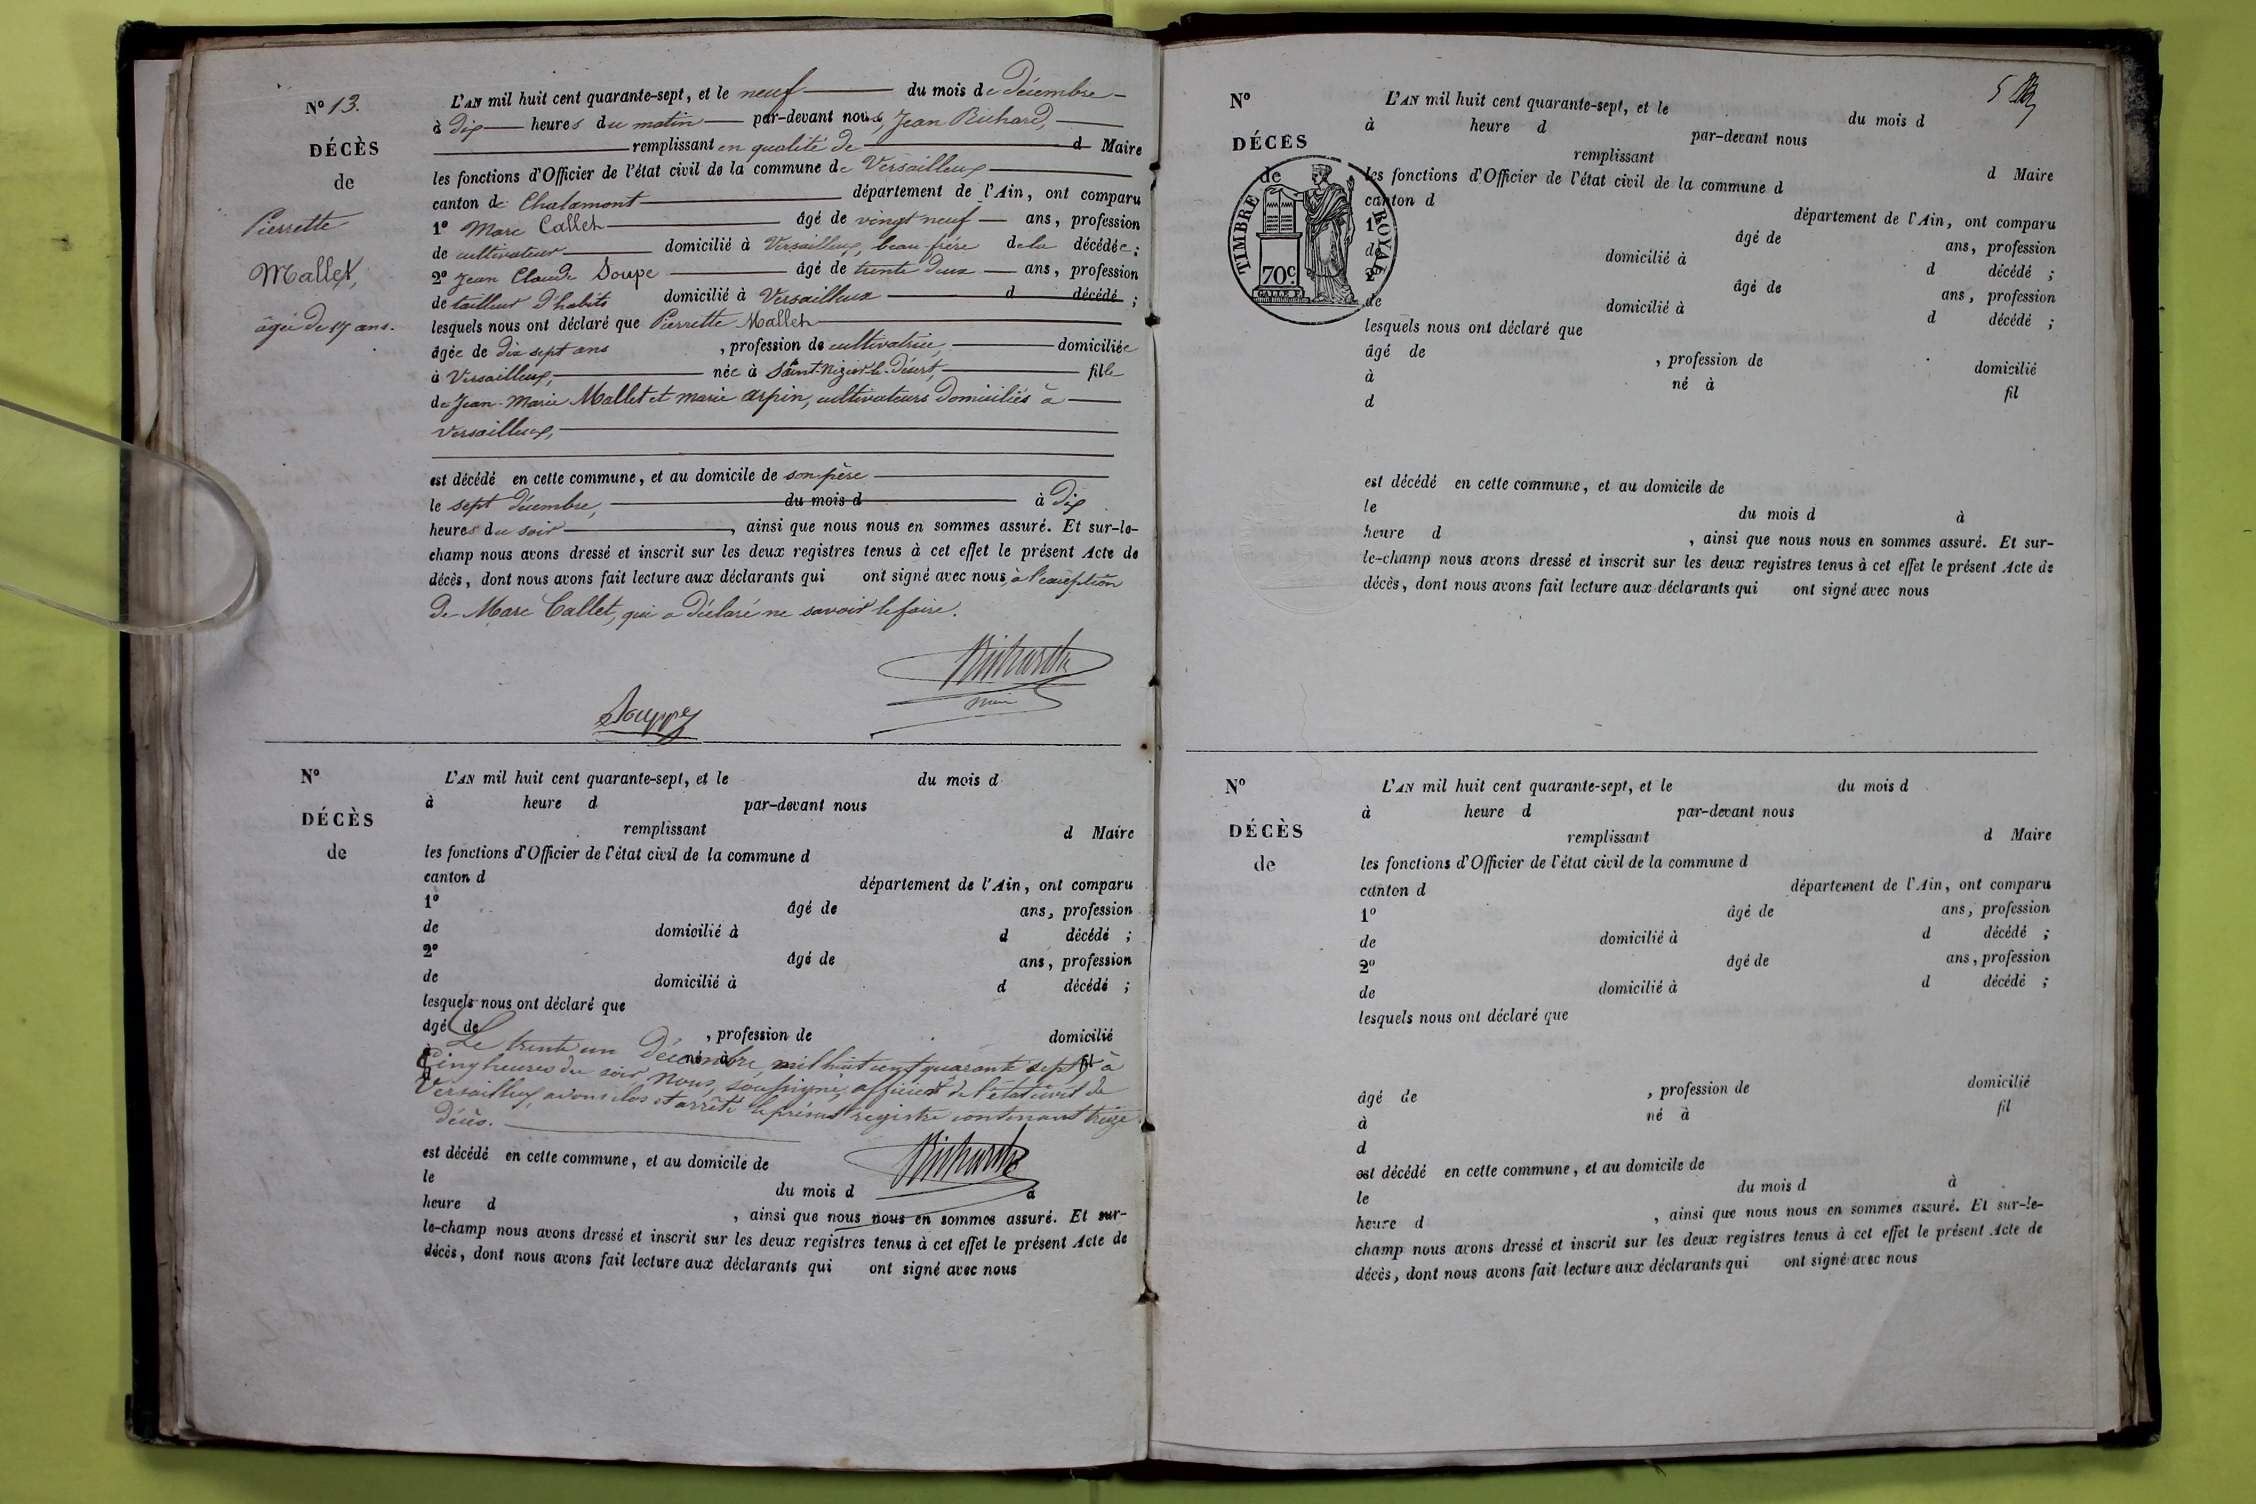 N° 13.
DÉCÈS
de
Pierrette
Mallet,
âgée de 17 ans.
L'AN mil huit cent quarante-sept, et le neuf du mois de décembre
à dix heures du matin par-devant nous, Jean Richard,
remplissant en qualité de d Maire
les fonctions d'Officier de l'état civil de la commune de Versailleux
canton de Chalamont département de l'Ain, ont comparu
1° Marc Callet âgé de vingt neuf ans, profession
de cultivateur domicilié à Versailleux, beau-frère de la décédée ;
2° Jean Claude Soupe âgé de trente deux ans, profession
de tailleur d'habits domicilié à Versailleux d décédé ;
lesquels nous ont déclaré que Pierrette Mallet
âgée de dix sept ans , profession de cultivatrice, domiciliée
à Versailleux, née à Saint-Nizier-le-Désert, fille
de Jean-Marie Mallet et marie arpin, cultivateurs domiciliés à
Versailleux,
est décédé en cette commune, et au domicile de son père
le sept décembre, du mois d à dix
heures du soir , ainsi que nous nous en sommes assuré. Et sur-le-
champ nous avons dressé et inscrit sur les deux registres tenus à cet effet le présent Acte de
décès, dont nous avons fait lecture aux déclarants qui ont signé avec nous, à l'exception
de Marc Callet, qui a déclaré ne savoir le faire.
Richard
Souppe
N°
DÉCÈS
de
L'AN mil huit cent quarante-sept, et le du mois d
à heure d par-devant nous
remplissant d Maire
les fonctions d'Officier de l'état civil de la commune d
canton d département de l'Ain, ont comparu
1° âgé de ans, profession
de domicilié à d décédé ;
2° âgé de ans, profession
de domicilié à d décédé ;
lesquels nous ont déclaré que
âgé de , profession de domicilié
né à fil
Le trente un Décembre, mil huit cent quarante sept, à
Cinq heures du soir Nous, soussigné, officier de l'état civil de
Versailleux, avons clos et arrêté le présent registre contenant treize
décès.
Richard
est décédé en cette commune, et au domicile de
le du mois d à
heure d , ainsi que nous nous en sommes assuré. Et sur-
le-champ nous avons dressé et inscrit sur les deux registres tenus à cet effet le présent Acte de
décès, dont nous avons fait lecture aux déclarants qui ont signé avec nous
5
N°
DÉCÈS
de
TIMBRE ROYAL
70c
L'AN mil huit cent quarante-sept, et le du mois d
à heure d par-devant nous
remplissant d Maire
les fonctions d'Officier de l'état civil de la commune d
canton d département de l'Ain, ont comparu
1° âgé de ans, profession
de domicilié à d décédé ;
2° âgé de ans, profession
de domicilié à d décédé ;
lesquels nous ont déclaré que
âgé de , profession de domicilié
à né à fil
d
est décédé en cette commune, et au domicile de
le du mois d à
heure d , ainsi que nous nous en sommes assuré. Et sur-
le-champ nous avons dressé et inscrit sur les deux registres tenus à cet effet le présent Acte de
décès, dont nous avons fait lecture aux déclarants qui ont signé avec nous
N°
DÉCÈS
de
L'AN mil huit cent quarante-sept, et le du mois d
à heure d par-devant nous
remplissant d Maire
les fonctions d'Officier de l'état civil de la commune d
canton d département de l'Ain, ont comparu
1° âgé de ans, profession
de domicilié à d décédé ;
2° âgé de ans, profession
de domicilié à d décédé ;
lesquels nous ont déclaré que
âgé de , profession de domicilié
à né à fil
d
est décédé en cette commune, et au domicile de
le du mois d à
heure d , ainsi que nous nous en sommes assuré. Et sur-le-
champ nous avons dressé et inscrit sur les deux registres tenus à cet effet le présent Acte de
décès, dont nous avons fait lecture aux déclarants qui ont signé avec nous